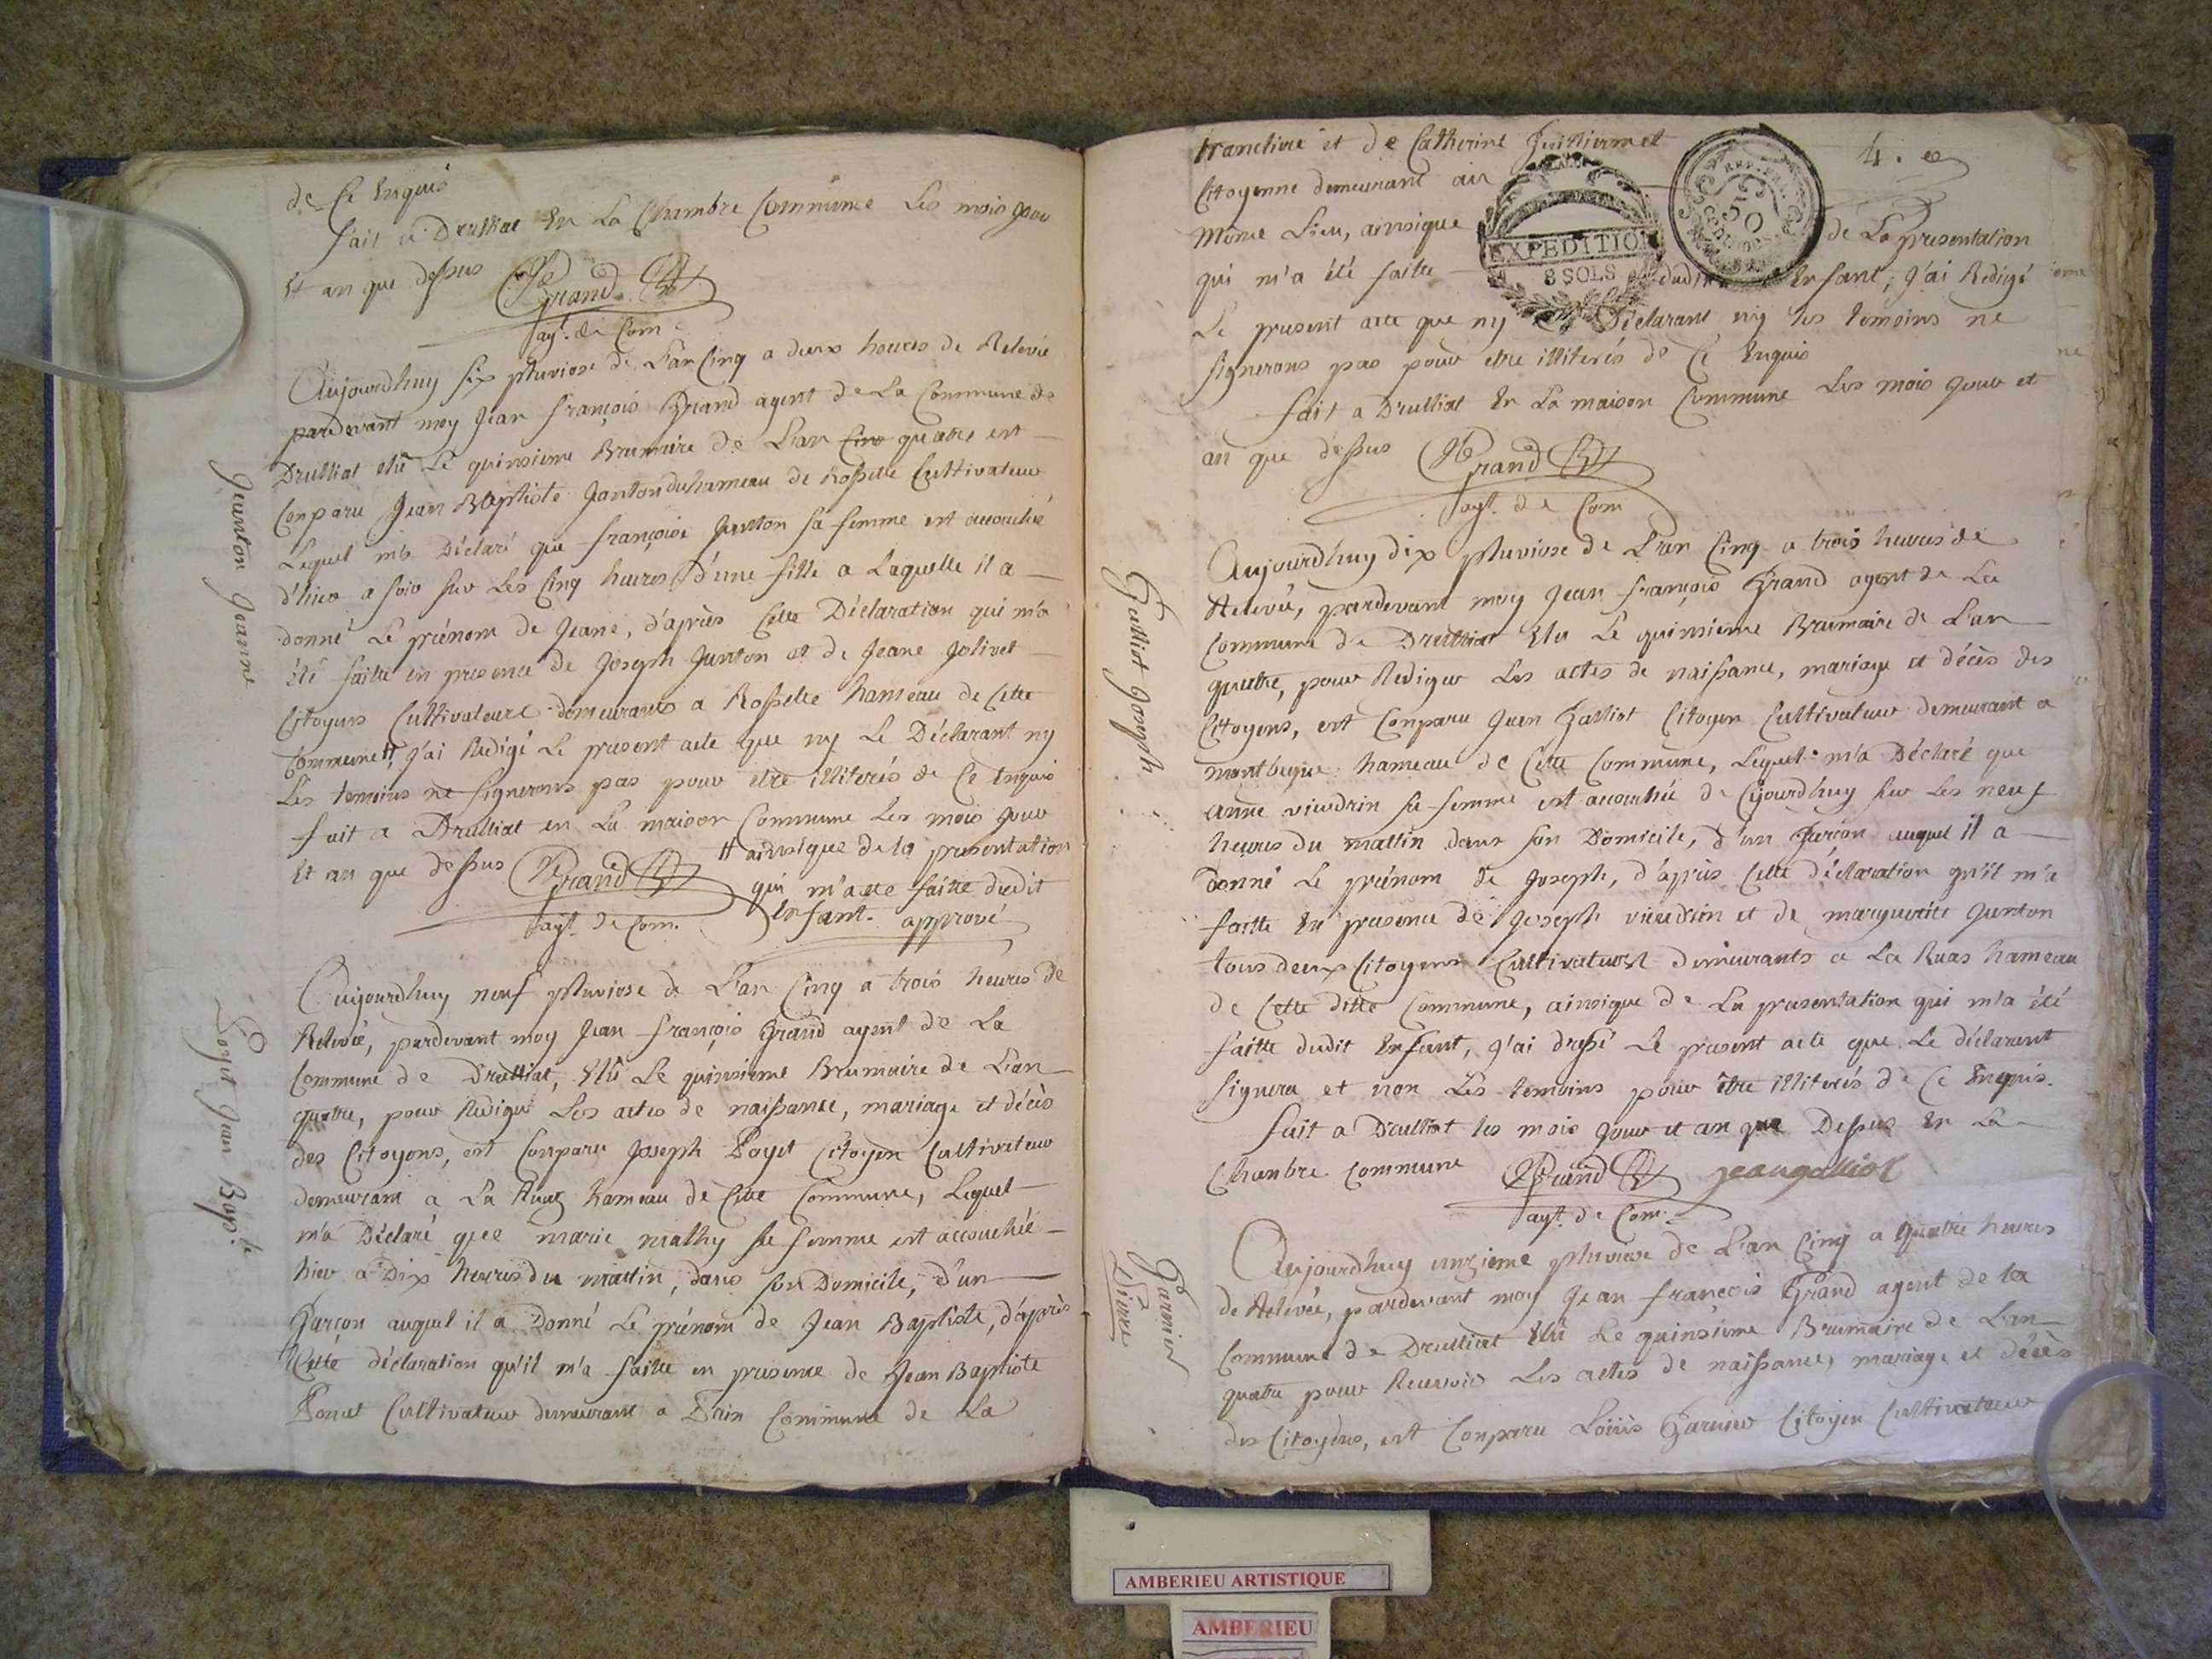 de Ce Enquis
fait a Drulliat En La Chambre Commune Les mois jour
Et an que dessus Grand
agt. de Com
Aujourdhuy six pluviose de L'an Cinq a deux heures de Relevée
pardevant moy Jean françois Grand agent de La Commune de
Drulliat élû Le quinsieme Brumaire de L'an Cinq quatre est
Conparu Jean Baptiste Janton du hameau de Rossette Cultivateur
Lequel m'a Déclaré que françoise Janton sa femme est accouchée
d'hier a soir sur Les Cinq heures d'une fille a Laquelle il a
donné Le prénom de Jeane, d'après Cette Déclaration qui m'a
été faitte en presence de Joseph Janton et de Jeane Jolivet
Citoyens Cultivateurs demeurants a Rossette hameau de Cette
Commune H, j'ai Redigé Le present acte que ny Le Déclarant ny
Les temoins ne signerons pas pour etre illiterés de Ce Enquis
fait a Drulliat en La maison Commune Les mois jour
Et an que dessus Grand H ainsique de la presentation
qui m'a ete faitte dudit
agt. de Com. Enfant. approuvé
Jeanton Jeanne
Aujourdhuy neuf pluviose de L'an Cinq a trois heures de
Relevée, pardevant moy Jean françois Grand agent de La
Commune de Drulliat, Elû Le quinsieme Brumaire de L'an
quatre, pour Rediger Les actes de naissance, mariage et décès
des Citoyens, est Conparu Joseph Poyet Citoyen Cultivateur
demeurant a La Ruaz hameau de Cette Commune, Lequel
m'a Déclaré que marie mathy sa femme est accouchée
hier a Dix heures du mattin, dans son Domicile, d'un
Garçon auquel il a Donné Le prénom de Jean Baptiste, d'après
Cette déclaration qu'il m'a faitte en presence de Jean Baptiste
Ponet Cultivateur demeurant a Commune de La
Poyet Jean Bapt.te
tranclière et de Catherine
4.
Citoyenne demeurant au
même Lieu, ainsique de La presentation
qui m'a été faitte dudit Enfant, j'ai Redigé
EXPEDITION
8 SOLS
REP. FRA.
50
Le present acte que ny Le Déclarant ny Les temoins ne
signerons pas pour etre illiterés de Ce Enquis
fait a Drulliat En La maison Commune Les mois jour et
an que dessus Grand
agt. de Com
Aujourdhuy dix pluviose de L'an Cinq a trois heures de
Relevée, pardevant moy Jean françois Grand agent de La
Commune de Drulliat Elu Le quinsieme Brumaire de L'an
quatre, pour Rediger Les actes de naissance, mariage et décès des
Citoyens, est Conparu Jean Galliot Citoyen Cultivateur demeurant a
hameau de Cette Commune, Lequel m'a Déclaré que
anne vieudrin sa femme est accouchée de Cejourdhuy sur Les neuf
heures du mattin dans son Domicile, d'un Garçon auquel il a
Donné Le prénom de Joseph, d'après Cette déclaration qu'il m'a
faitte En presence de Joseph vieudrin et de marguerite Janton
tous deux Citoyens Cultivateurs demeurants a La Ruas hameau
de Cette ditte Commune, ainsique de La presentation qui m'a été
faitte dudit Enfant, j'ai dressé Le present acte que Le déclarant
signera et non Les temoins pour être illiterés de Ce Enquis.
fait a Drulliat les mois jour et an que Dessus En La
Chambre Commune Grand jean galliot
agt. de Com.
Galliot Joseph
Aujourdhuy onzieme pluviose de L'an Cinq a quatre heures
de Relevée, pardevant moy Jean francois Grand agent de la
Commune de Drulliat Elû Le quinsieme Brumaire de L'an
quatre pour Recevoir Les actes de naissance, mariage et décès
des Citoyens, est Conparu Loüis Garnier Citoyen Cultivateur
Garnier
Pierre
AMBERIEU ARTISTIQUE
AMBERIEU